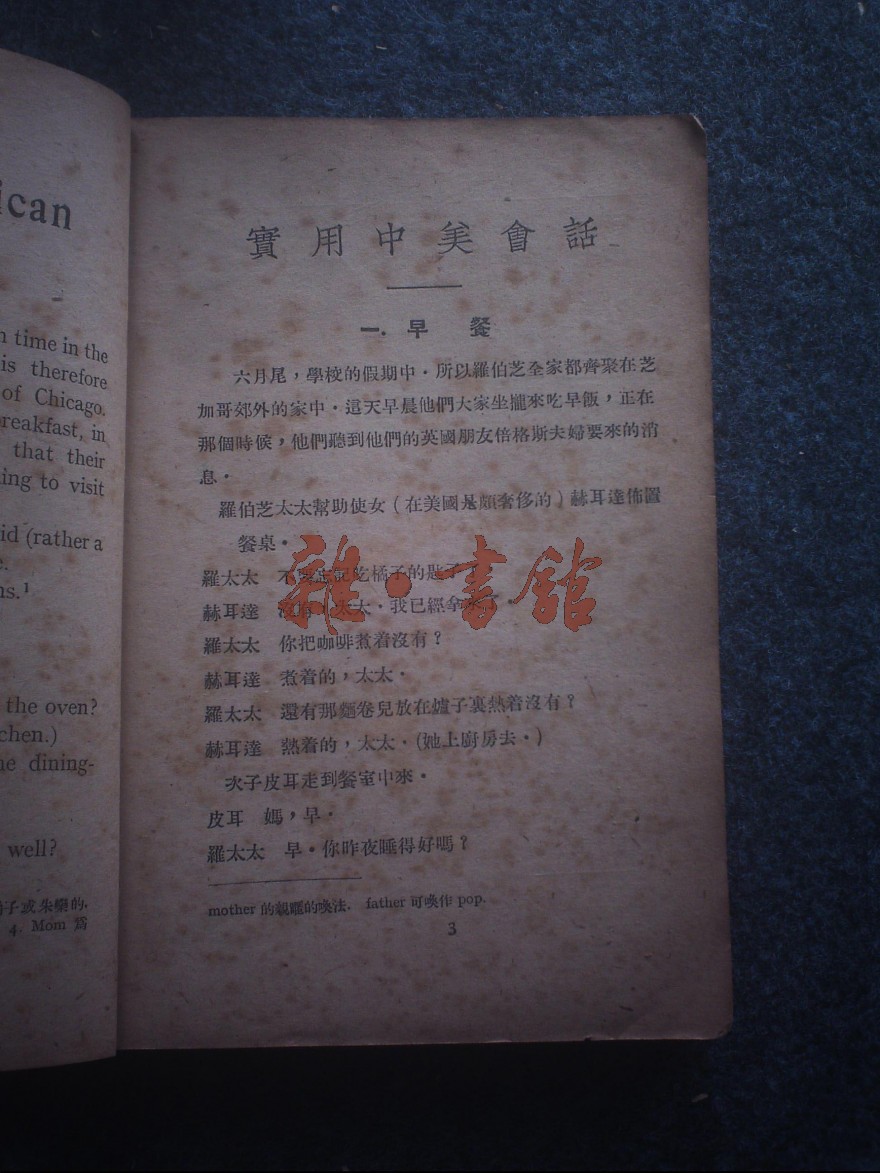 ican
n time in the
is therefore
of Chicago.
reakfast, in
that their
ing to visit
id (rather a
e.
ns.¹
the oven?
chen.)
ne dining-
well?
子或朱欒的.
4. Mom 爲
實用中美會話
一. 早餐
六月尾，學校的假期中．所以羅伯芝全家都齊聚在芝
加哥郊外的家中．這天早晨他們大家坐攏來吃早飯，正在
那個時候，他們聽到他們的英國朋友倍格斯夫婦要來的消
息．
羅伯芝太太幫助使女（在美國是頗奢侈的）赫耳達佈置
餐桌．
羅太太 不要忘記吃橘子的匙子
赫耳達 沒有，太太．我已經拿來了．
羅太太 你把咖啡煮着沒有？
赫耳達 煮着的，太太．
羅太太 還有那麵卷兒放在爐子裏熱着沒有？
赫耳達 熱着的，太太．(她上廚房去．)
次子皮耳走到餐室中來．
皮耳 媽，早．
羅太太 早．你昨夜睡得好嗎？
mother 的親暱的喚法. father 可喚作 pop.
3
雜·書館